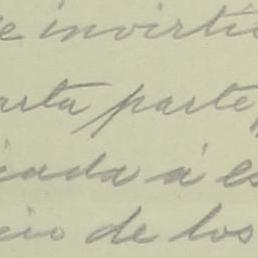 e invirti
arta parte,
icada á es
cio de los